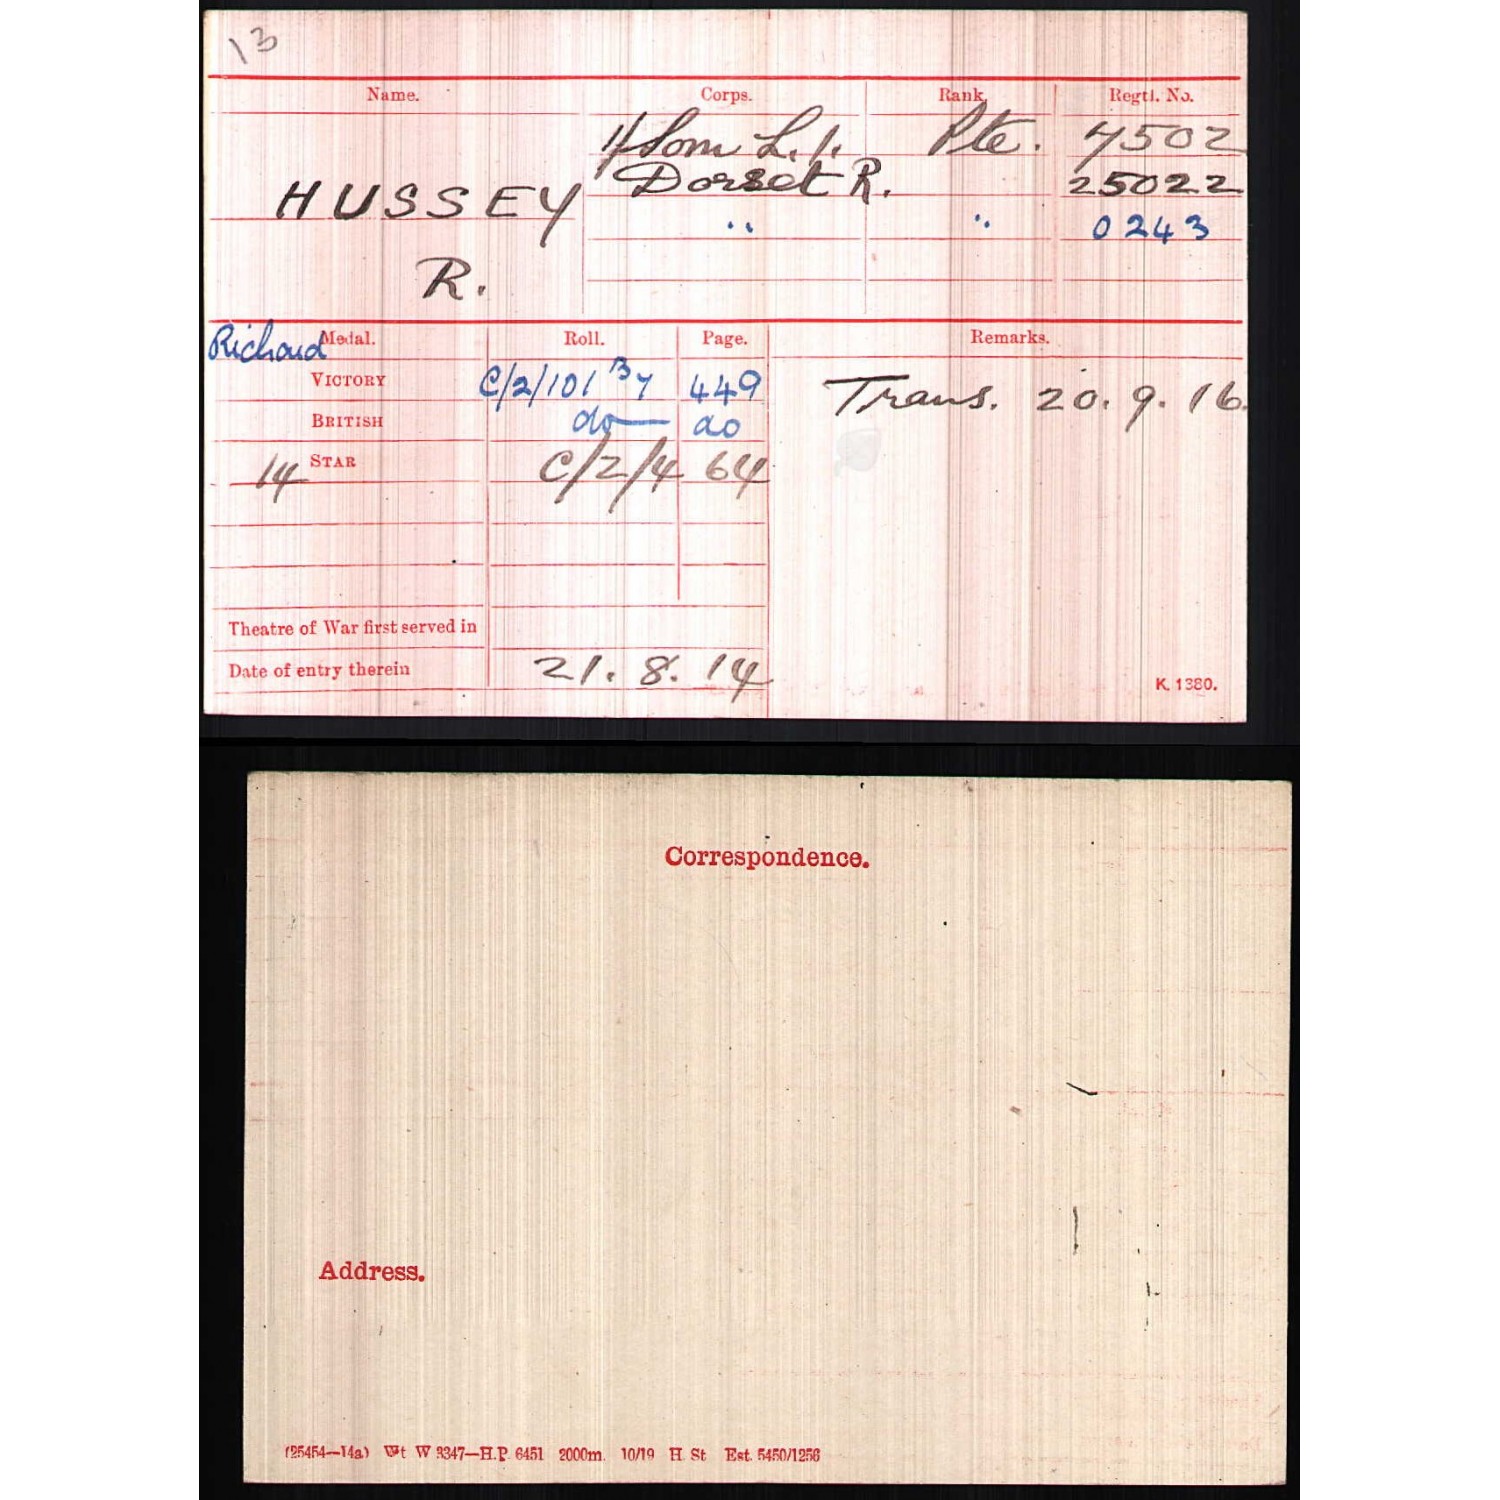 13
Name. Corps. Rank. Regtl. No.
1/Som L.I. Pte. 7502
HUSSEY Dorset R. 25022
" " 0243
R.
Richard Medal. Roll. Page. Remarks.
VICTORY C/2/101 B7 449 Trans. 20.9.16.
BRITISH do do
14 STAR C/2/4 64
Theatre of War first served in
Date of entry therein 21.8.14
K. 1380.
Correspondence.
Address.
(25454—14a) Wt W 3347—H.P. 6451 2000m. 10/19 H. St Est. 5450/1256